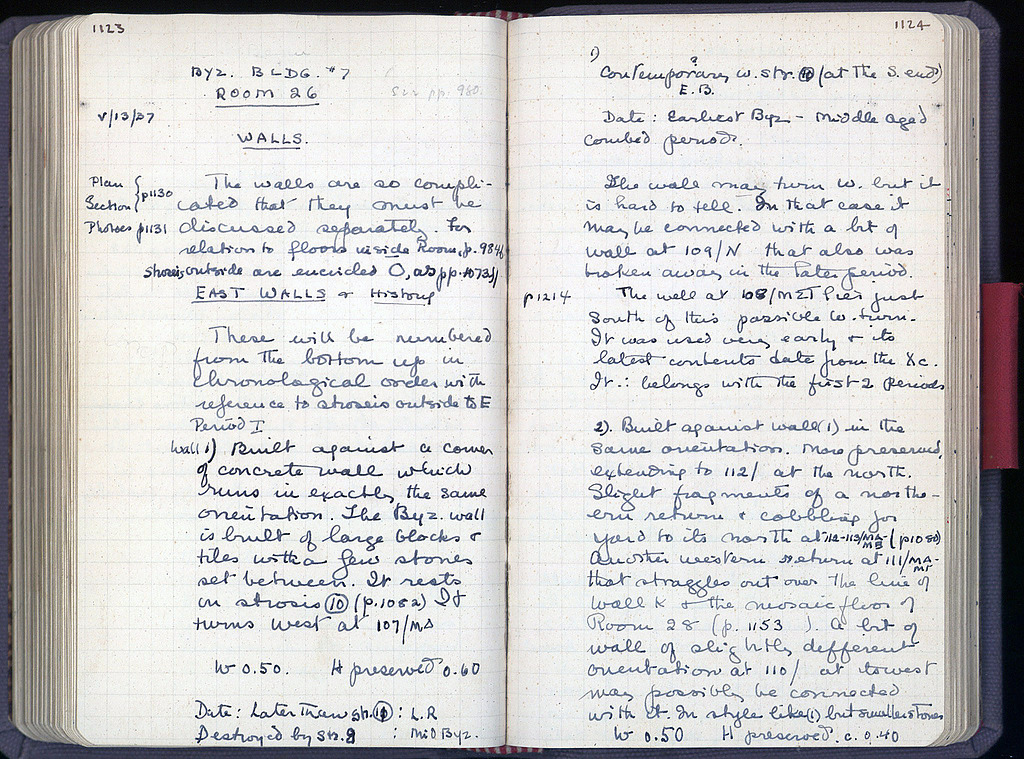 1123
BYZ. BLDG. #7
ROOM 26
See pp. 980.
V/13/37
WALLS.
Plan
Section } p1130
Photoes p1131
The walls are so compli-
cated that they must be
discussed separately. For
relation to floors inside Room, p. 984ff
stroseis outside are encircled O, as pp. 1073ff
EAST WALLS & History
These will be numbered
from the bottom up in
chronological order with
reference to stroseis outside to E
Period I
Wall 1) Built against a corner
of concrete wall which
runs in exactly the same
orientation. The Byz. wall
is built of large blocks &
tiles with a few stones
set between. It rests
on strosis (10) (p. 1082) It
turns west at 107/MΔ
W 0.50. H preserved 0.60
Date: Later than str. (10) : L.R
Destroyed by str. 9 : Mid Byz.
1124
1)
Contemporary w. str. (10) (at the S. end?)
E.B.
Date: Earliest Byz - Middle aged
combed period.
The wall may turn W. but it
is hard to tell. In that case it
may be connected with a bit of
wall at 109/N that also was
broken away in the later period.
p1214
The well at 108/MΣT lies just
South of this possible W. turn.
It was used very early & its
latest contents date from the &c.
It ∴ belongs with the first 2 periods
2). Built against wall (1) in the
same orientation. Now preserved,
extending to 112/ at the north.
Slight fragments of a north-
ern return & cobbling for
yard to its north at 112-113/MA-MB (p1080)
Another western return at 111/MA-
that straggles out over the line of
wall K & the mosaic floor of
Room 28 (p. 1153 ). A bit of
wall of slightly different
orientation at 110/ at lowest
may possibly be connected
with it. In style like (1) but smaller stones
W 0.50 H preserved. c. 0.40